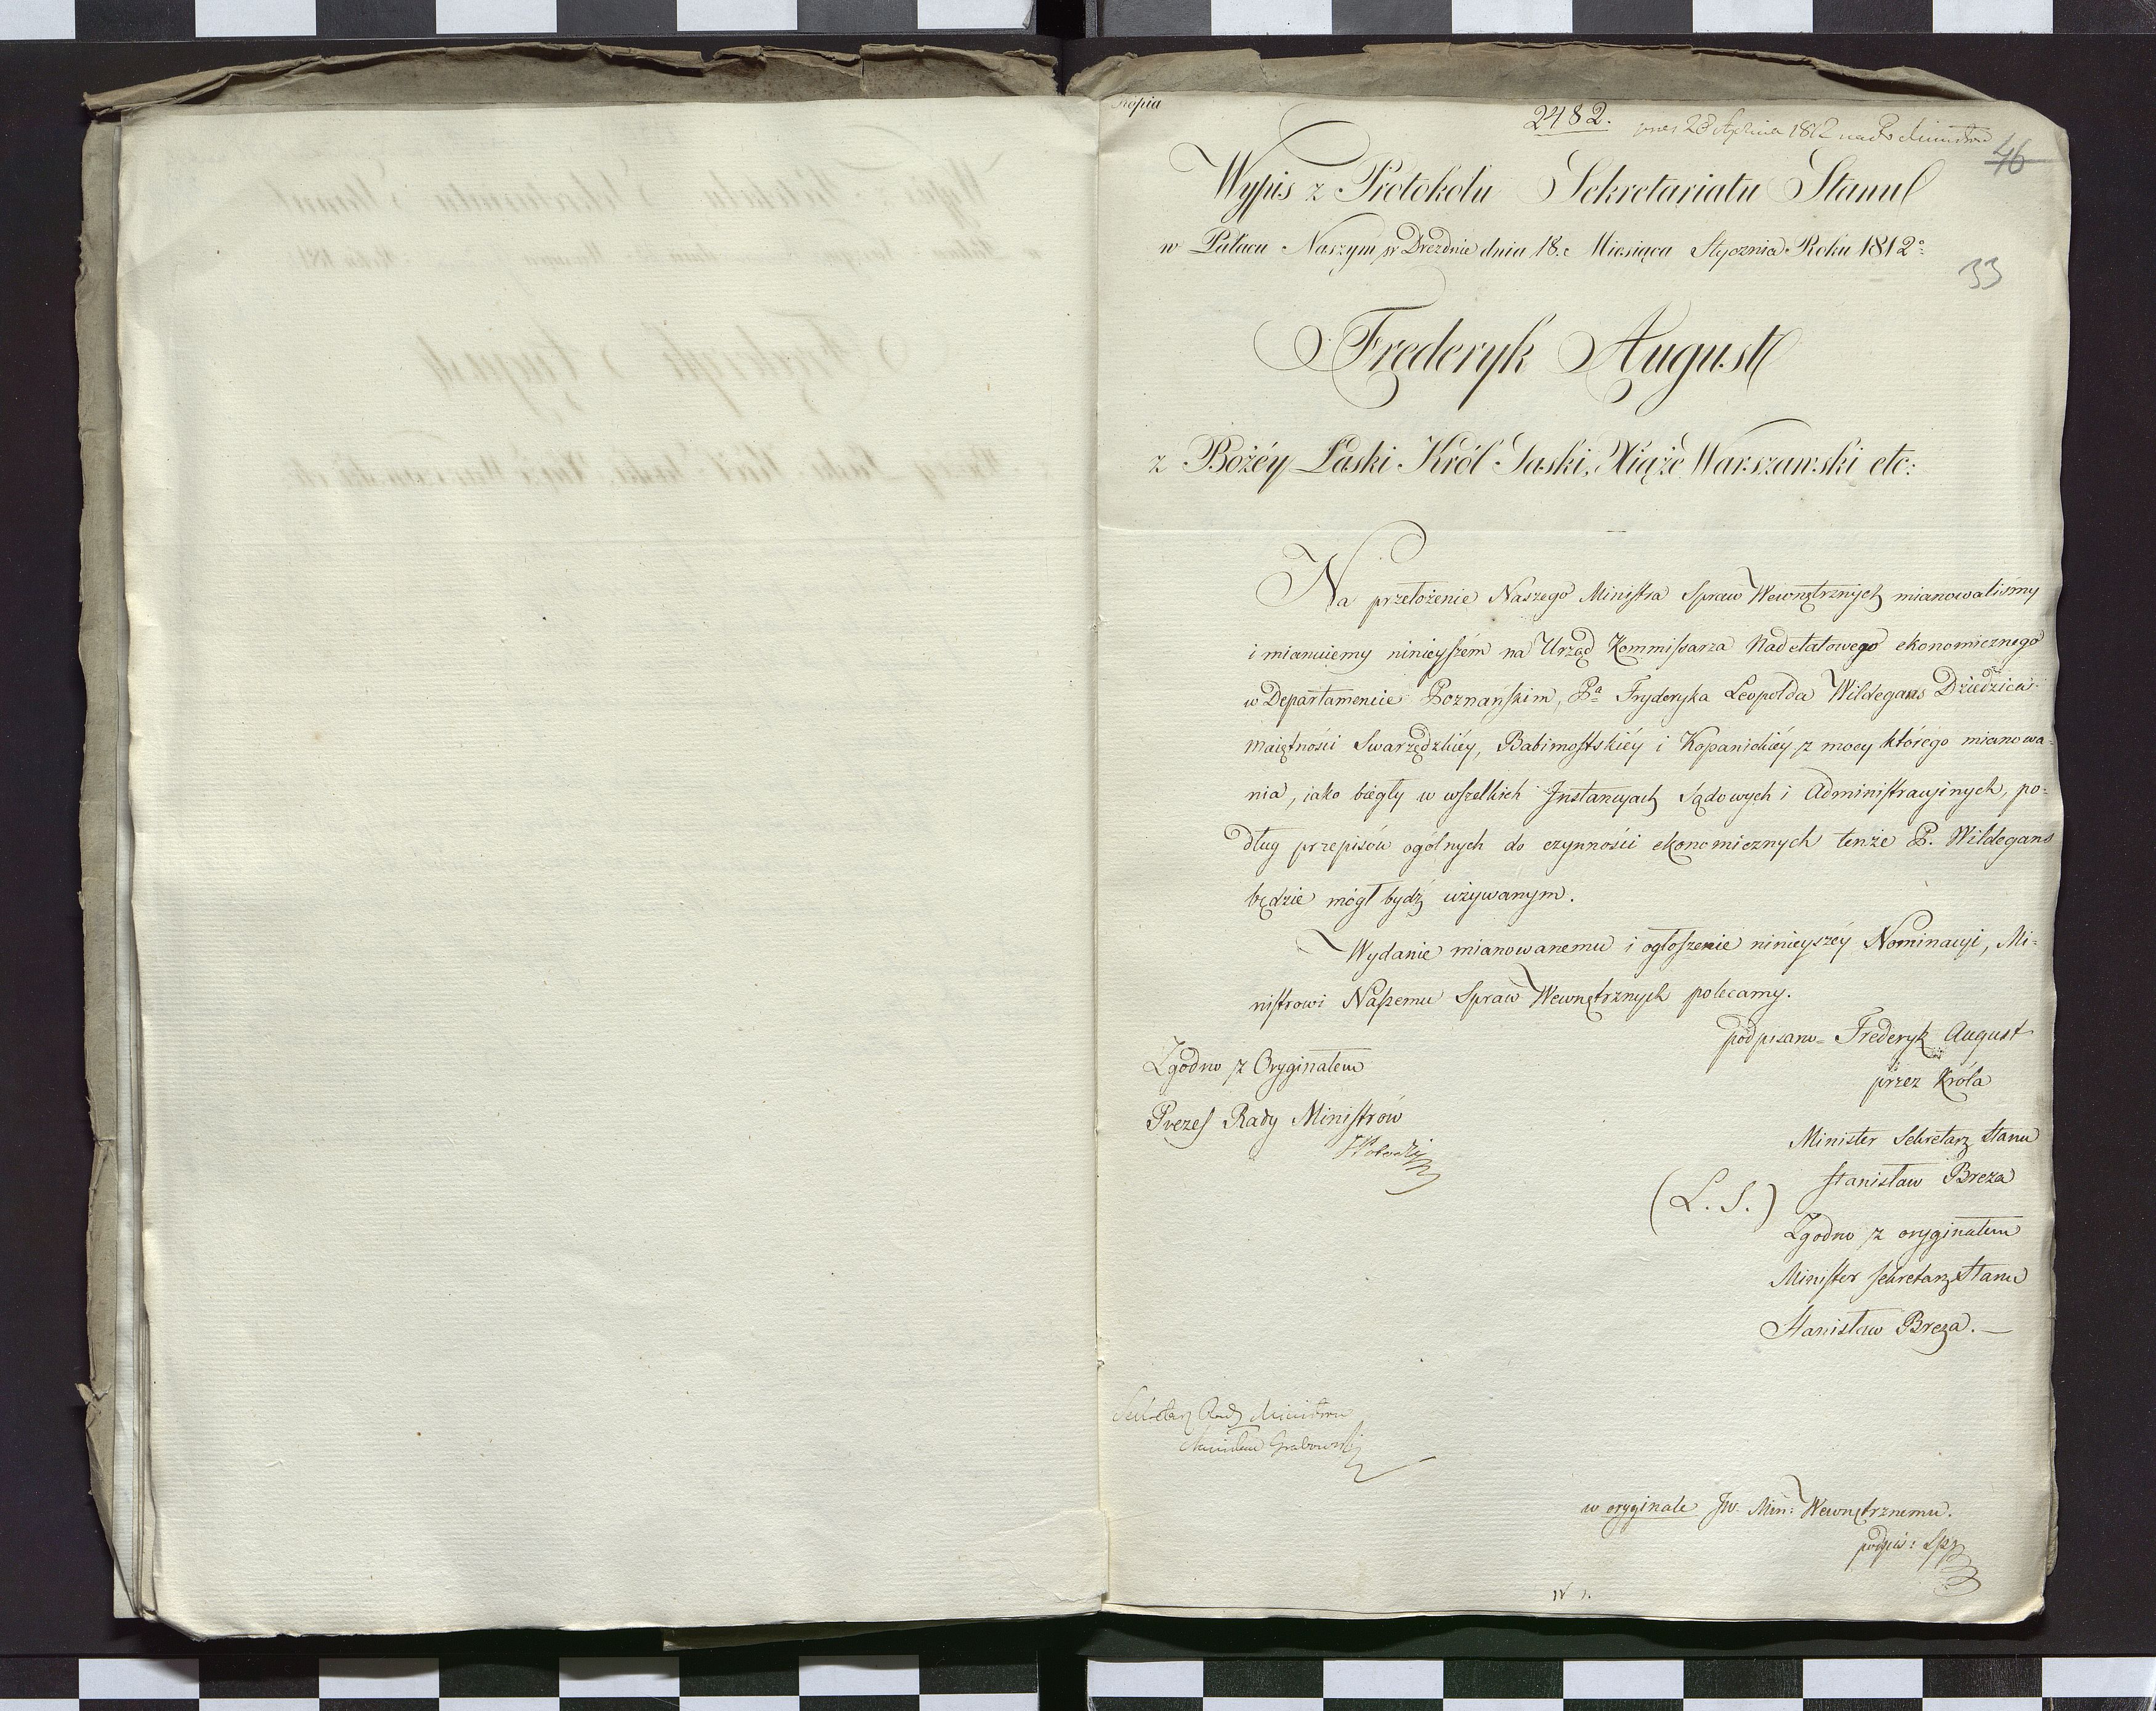 Kopia
2482.
46
Wypis z Protokołu Sekretariatu Stanu
w Pałacu Naszym w Dreźnie dnia 18. Miesiąca Stycznia Roku 1812°
33
Frederyk August
z Bożéy Łaski Król Saski, Xiąże Warszawski etc:
Na przełożenie Naszego Ministra Spraw Wewnętrznych mianowalismy
i mianuiemy ninieyszém na Urząd Kommissarza Nadetatowego ekonomicznego
w Departamencie Poznańskim, Pa Fryderyka Leopolda Wildegans Dziedzica
maiętności Swarzędzkiéy, Babimostskiéy i Kopanickiéy z mocy którego mianowa=
nia, iako biegły w wszelkich Instancyach Sądowych i Administracyinych, po=
dług przepisów ogólnych do czynności ekonomicznych tenże P. Wildegans
będzie mógł bydź używanym.
Wydanie mianowanemu i ogłoszenie ninieyszéy Nominacyi, Mi=
nistrowi Naszemu Spraw Wewnętrznych polecamy.
podpisano= Frederyk August
przez Króla
Zgodno z Oryginałem
Prezes Rady Ministrów
Minister Sekretarz Stanu
Stanisław Breza
(L. S.)
Zgodno z oryginałem
Minister Sekretarz Stanu
Stanisław Breza. —
Sekretarz Rady Ministrów
Stanisław Grabowski
w oryginale JW. Min: Wewnętrznemu.